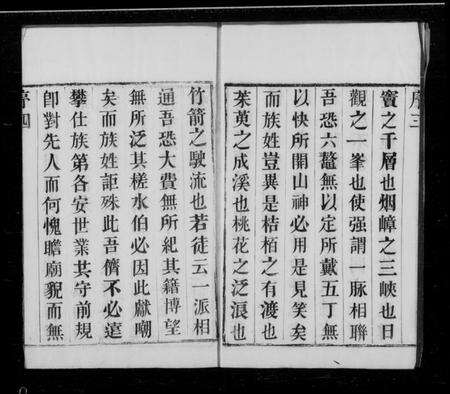 序三
寳之千層也烟嶂之三峽也日
觀之一峯也使强謂一脈相聯
吾恐六鼇無以定所戴五丁無
以快所開山神必用是見笑矣
而族姓豈異是桔栢之有渡也
茱萸之成溪也桃花之泛浪也
竹箭之駛流也若徒云一派相
通吾恐大費無所紀其籍博望
無所泛其槎水伯必因此獻嘲
矣而族姓詎殊此吾儕不必遠
攀仕族第各安世業其守前規
卽對先人而何愧瞻廟貌而無
序四